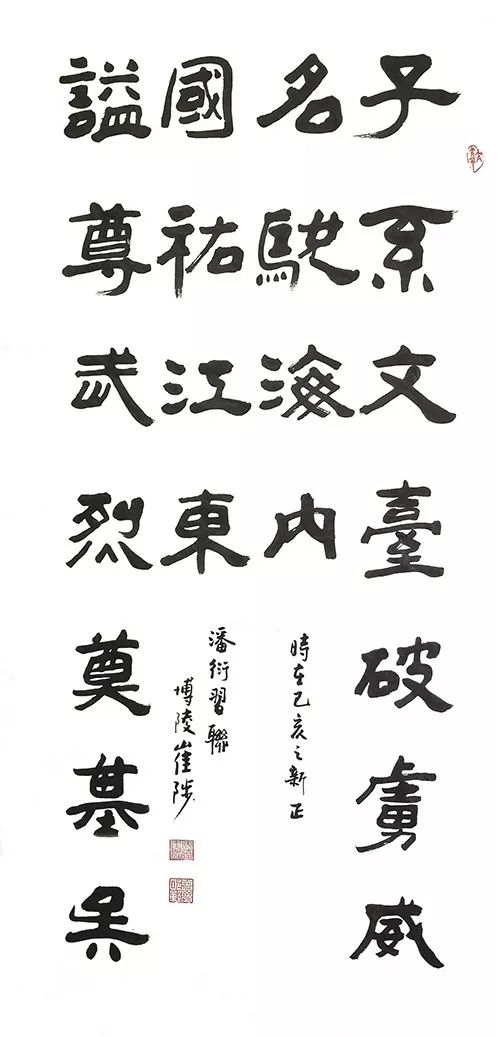 子系文臺破虜威
名駛海内
時在己亥之新正
謚尊武烈奠基吳
國祐江東
潘衍習聯
博陵崔陟